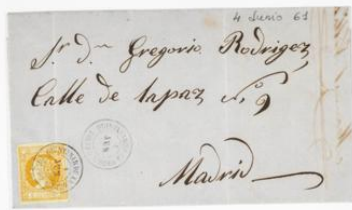 4 Junio 61
Sr. Dn. Gregorio Rodriguez
Calle de lapaz nº 9
Madrid